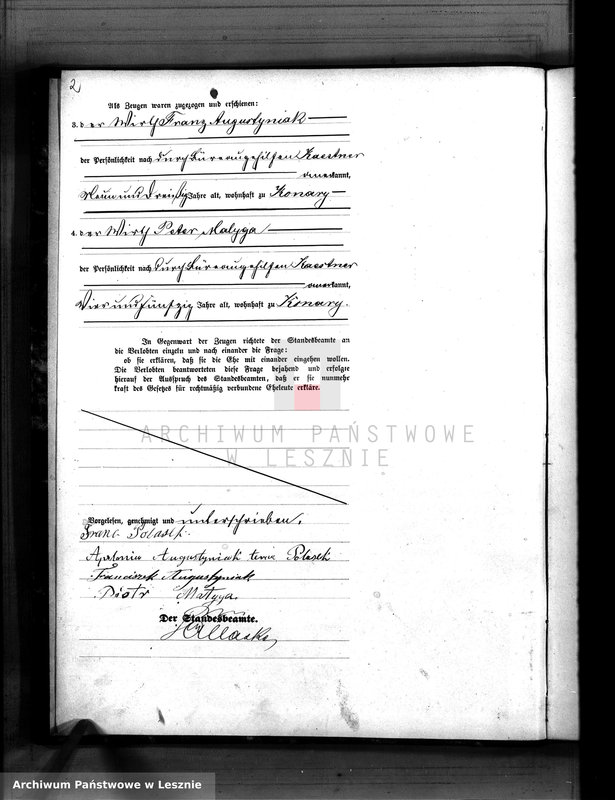 2
Als Zeugen waren zugezogen und erschienen:
3. der Wirth Franz Augustyniak
der Persönlichkeit nach durch Büreaugehilfen Kaestner
anerkannt,
Neun und dreißig Jahre alt, wohnhaft zu Konary
4. der Wirth Peter Malyga
der Persönlichkeit nach durch Büreaugehilfen Kaestner
anerkannt,
Vier und fünfzig Jahre alt, wohnhaft zu Konary.
In Gegenwart der Zeugen richtete der Standesbeamte an
die Verlobten einzeln und nach einander die Frage:
ob sie erklären, daß sie die Ehe mit einander eingehen wollen.
Die Verlobten beantworteten diese Frage bejahend und erfolgte
hierauf der Ausspruch des Standesbeamten, daß er sie nunmehr
kraft des Gesetzes für rechtmäßig verbundene Eheleute erkläre.
ARCHIWUM PAŃSTWOWE
W LESZNIE
Vorgelesen, genehmigt und unterschrieben.
Franc Polasik
Apolonia Augustyniak teraz Polasik
Franciszek Augustyniak
Piotr Małyga.
Der Standesbeamte.
Archiwum Państwowe w Lesznie